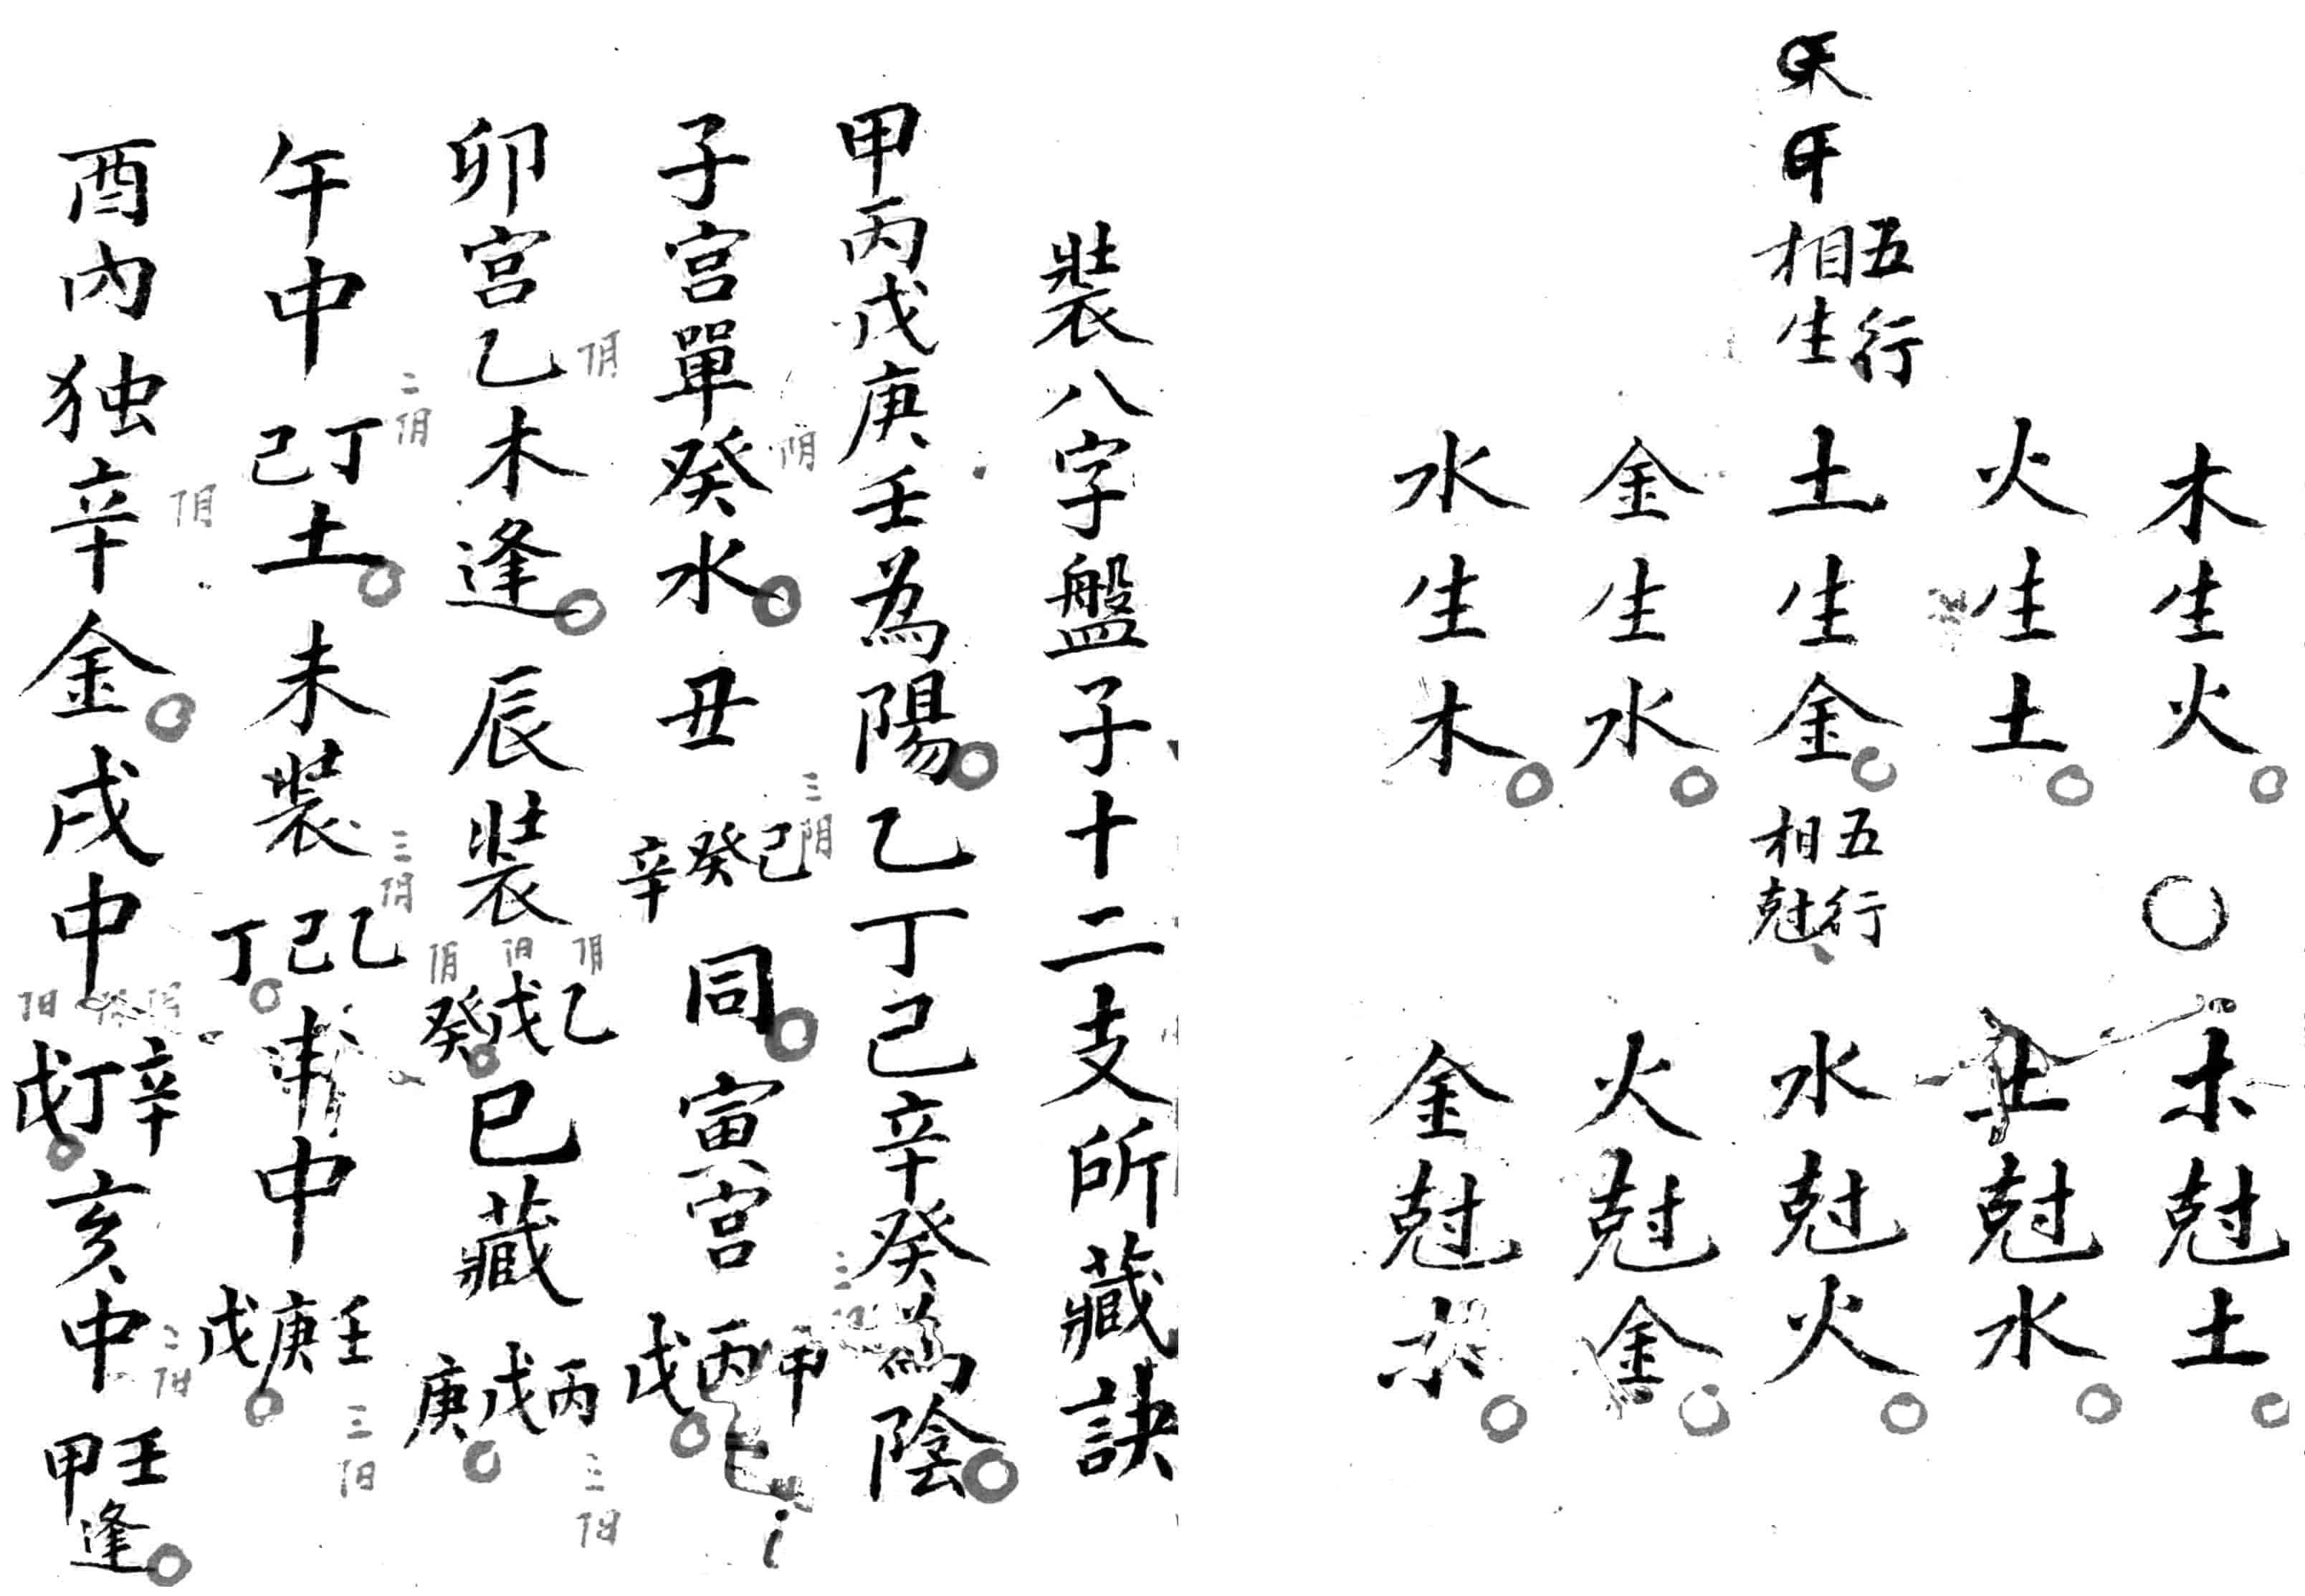 五行
相生
木生火
火生土
土生金
金生水
水生木
五行
相尅
木尅土
土尅水
水尅火
火尅金
金尅木
裝八字盤子十二支所藏訣
甲丙戊庚壬為陽乙丁己辛癸為陰
子宮單癸水丑己癸辛同寅宮甲丙戊
卯宮乙木逢辰裝乙戊癸巳藏丙戊庚
午中丁己土未裝乙己丁申中壬庚戊
酉內独辛金戌中辛丁戊亥中壬甲逢
阴
阴
三阴
阴
阳
阴
三阳
二阴
三阴
三阳
阴
阳
二阳